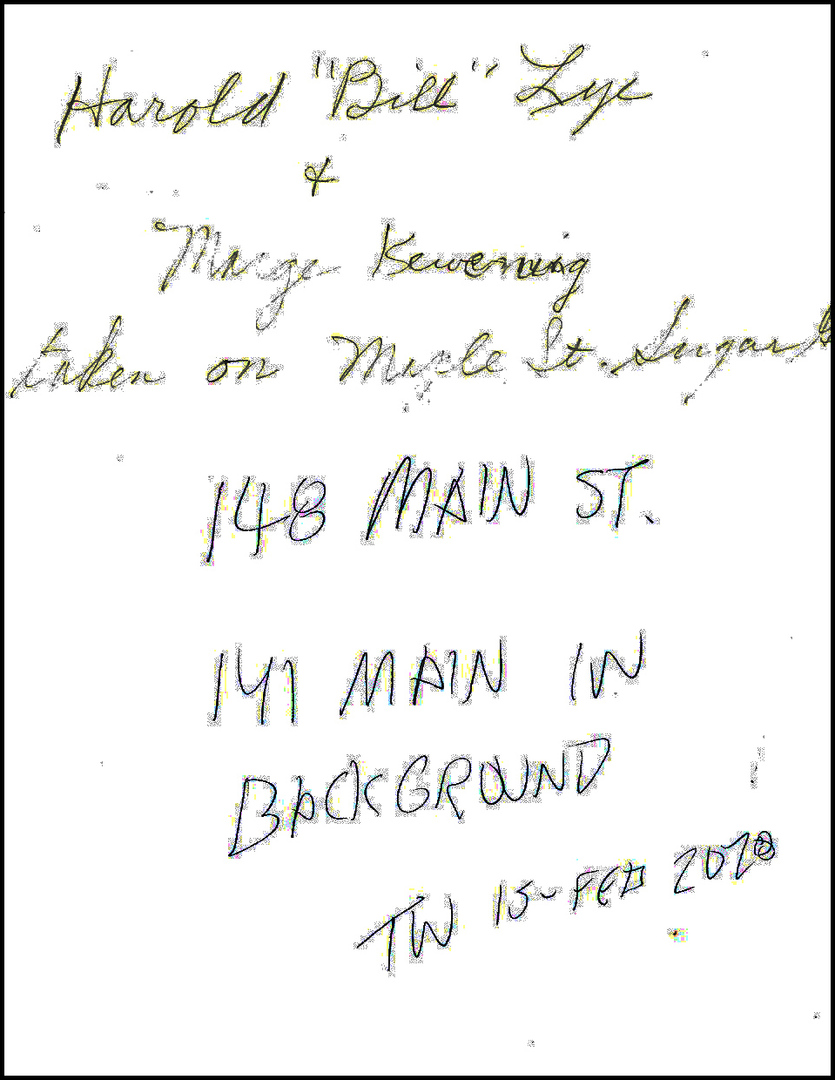 Harold "Bill" Lye
&
Marge Kewening
taken on Maple St. Sugar
148 MAIN ST.
141 MAIN IN
BACKGROUND
TW 15-FEB 2020